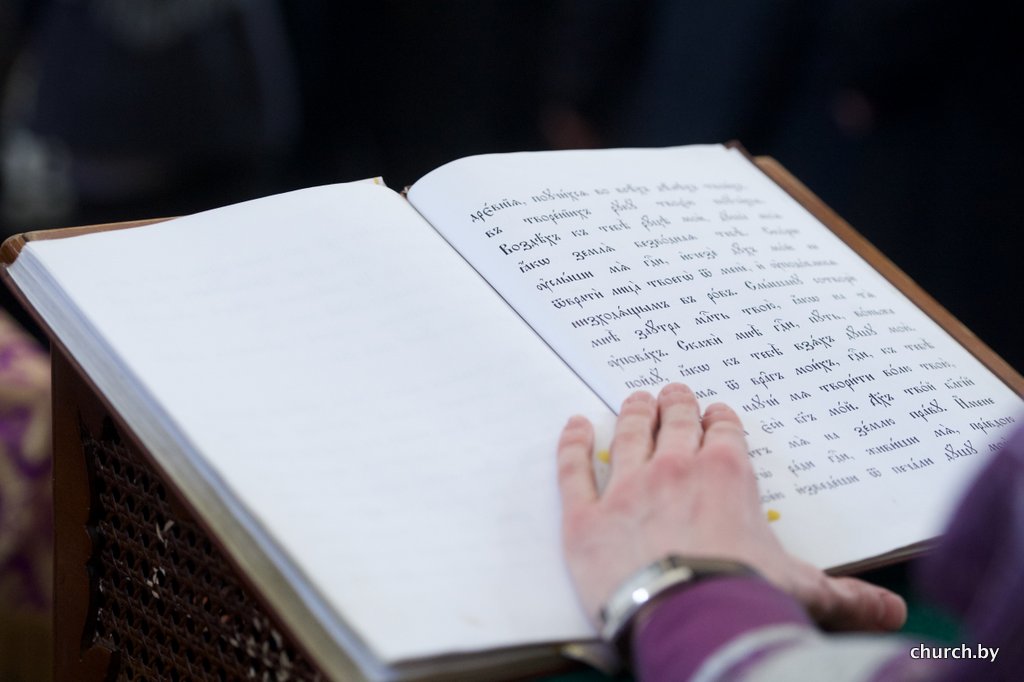 дрє́внѧѧ, поꙋчи́хсѧ во всѣ́хъ дѣ́лѣхъ твои́хъ,
въ творе́нїихъ рꙋкꙋ̀ твоє́ю поꙋча́хсѧ.
Воздѣ́хъ къ тебѣ̀ рꙋ́цѣ моѝ, дꙋша̀ моѧ̀
ꙗ҆́кѡ землѧ̀ безво́днаѧ тебѣ̀. Ско́рѡ
ᲂу҆слы́ши мѧ̀ гдⷭ҇и, и҆счезѐ дꙋ́хъ мо́й не
ѿвратѝ лица̀ твоегѡ̀ ѿ менє̀, и҆ ᲂу҆подо́блюсѧ
низходѧ́щымъ въ ро́въ. Слы́шанꙋ сотворѝ
мнѣ̀ заꙋ́тра млⷭ҇ть твою̀, ꙗ҆́кѡ на тѧ̀
ᲂу҆пова́хъ. Скажѝ мнѣ̀ гдⷭ҇и, пꙋ́ть, во́ньже
пойдꙋ̀, ꙗ҆́кѡ къ тебѣ̀ взѧ́хъ дꙋ́шꙋ мою̀.
мѧ̀ ѿ вра̑гъ мои́хъ, гдⷭ҇и, къ тебѣ̀
мѧ̀ твори́ти во́лю твою̀,
є҆сѝ бг҃ъ мо́й. Дх҃ъ тво́й бл҃гі́й
мѧ̀ на зе́млю пра́вꙋ. И҆́мене
ра́ди гдⷭ҇и, живи́ши мѧ̀, пра́вдою
и҆зведе́ши ѿ печа́ли дꙋ́шꙋ мою̀
church.by